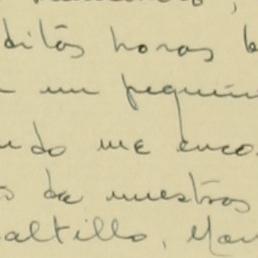 ditas horas
un pequeñ
ndo me enco
os de nuestros
Saltillo, Mon